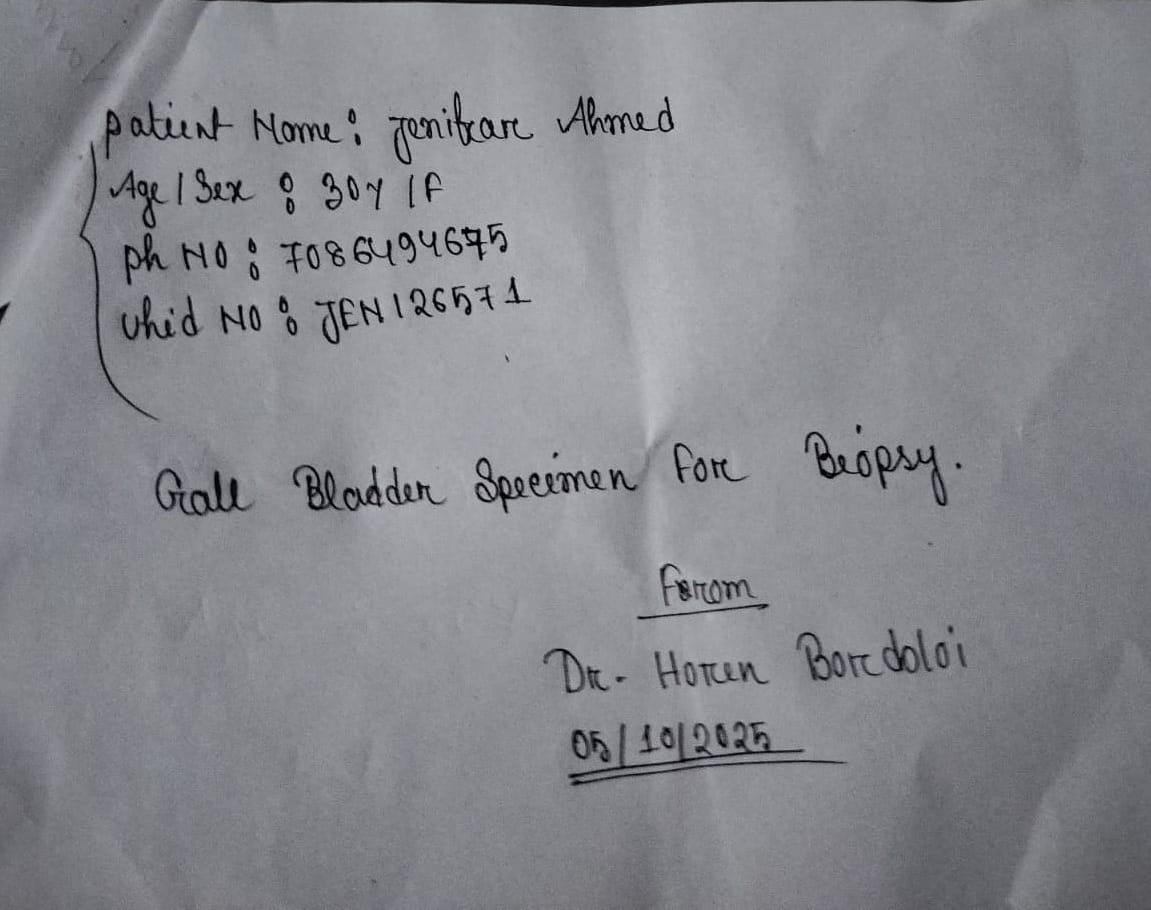 patient Name: Jenifar Ahmed
Age / Sex : 30Y / F
ph NO : 7086494675
Uhid NO : JEN126571
Gall Bladder Specimen For Biopsy.
From
Dr. Horen Bordoloi
05/10/2025